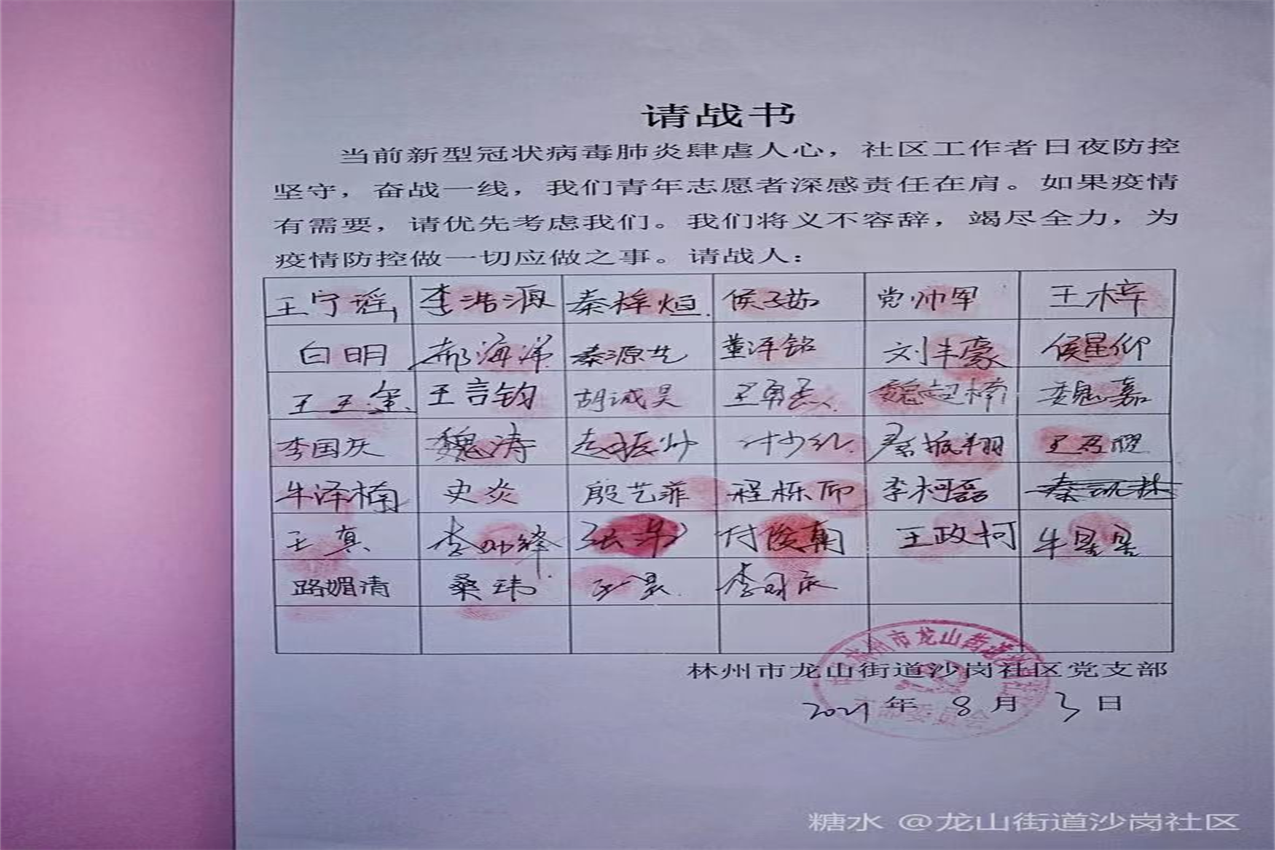 请战书
当前新型冠状病毒肺炎肆虐人心，社区工作者日夜防控
坚守，奋战一线，我们青年志愿者深感责任在肩。如果疫情
有需要，请优先考虑我们。我们将义不容辞，竭尽全力，为
疫情防控做一切应做之事。请战人：
王宁瑶 李浩源 秦梓烜 侯子茹 党帅军 王梓
白明 郝海洋 秦源艺 董泽铭 刘丰豪 侯星仰
王言钧 胡诚昊 魏超楠 魏嘉
李国庆 魏涛 赵振帅 付少红
牛泽楠 史炎 殷艺菲 程栎而 李柯磊
王真 李帅锋 付俊朝 王政柯 牛星星
路媚清 桑玮 李国庆
林州市龙山街道沙岗社区党支部
2021年8月3日
糖水 @龙山街道沙岗社区